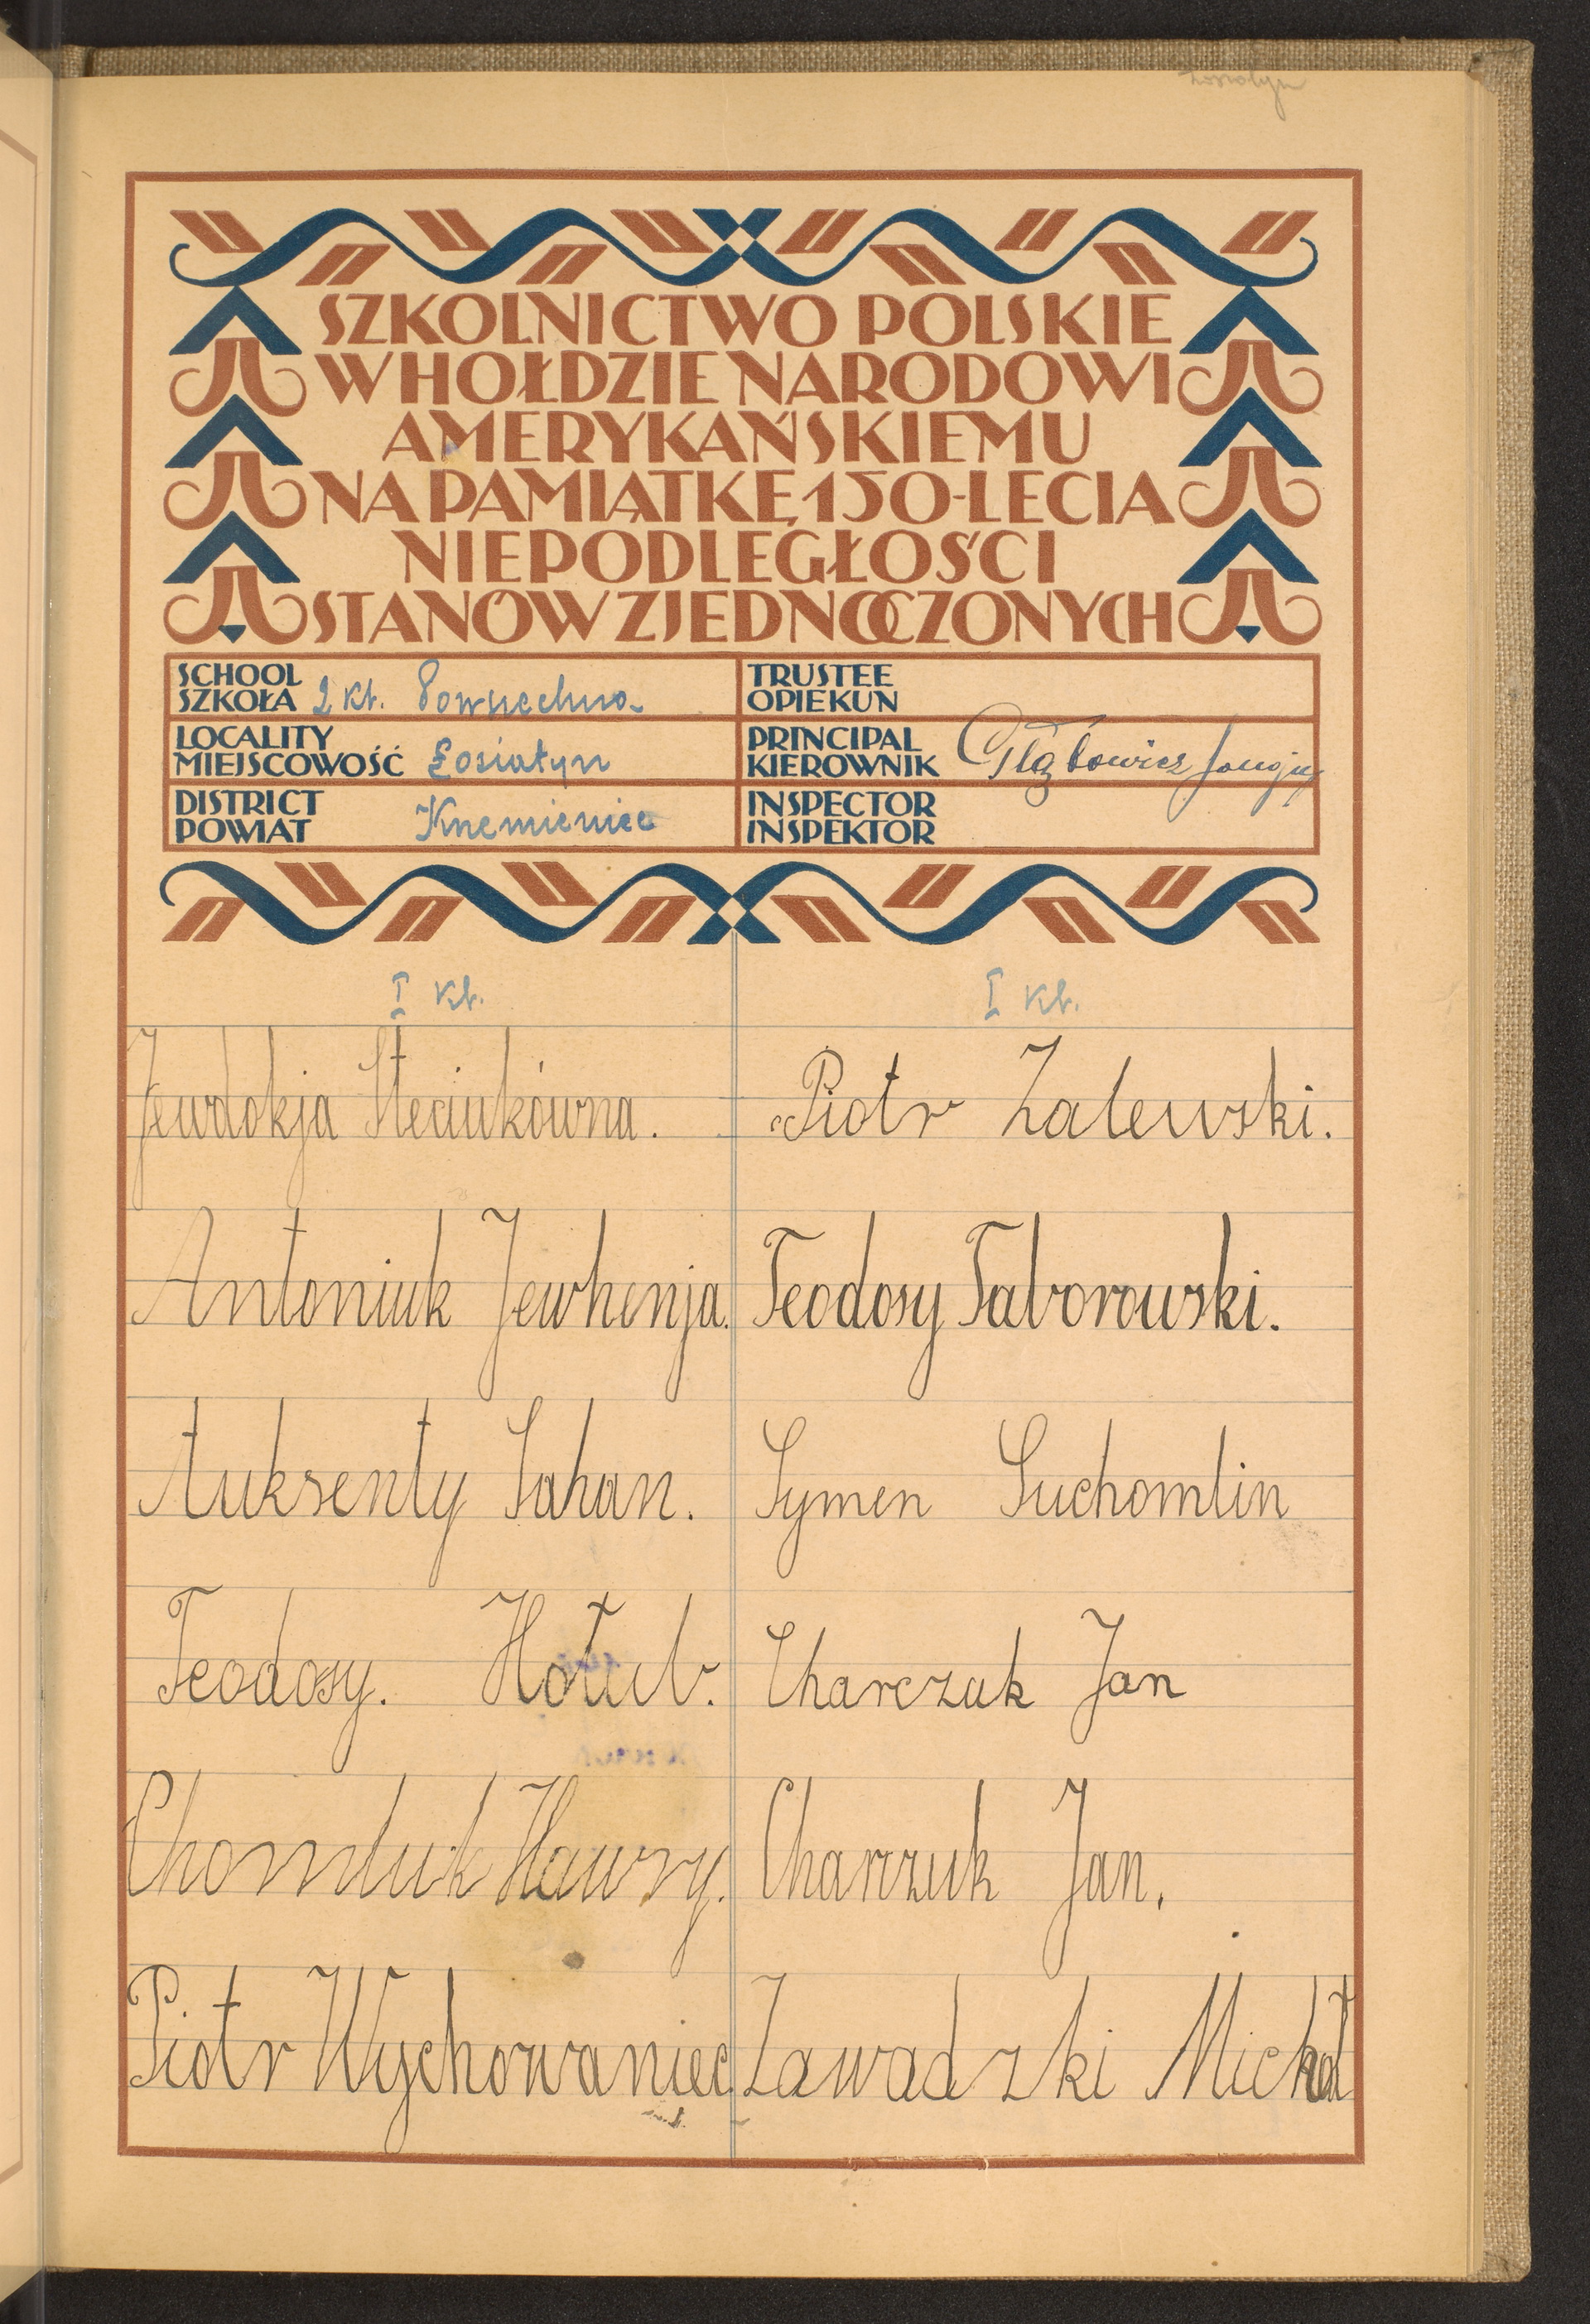 Łosiatyn
SZKOLNICTWO POLSKIE
W HOŁDZIE NARODOWI
AMERYKAŃSKIEMU
NA PAMIĄTKĘ 150-LECIA
NIEPODLEGŁOŚCI
STANÓW ZJEDNOCZONYCH
SCHOOL
SZKOŁA 2 kl. Powszechna
LOCALITY
MIEJSCOWOŚĆ Łosiatyn
DISTRICT
POWIAT Krzemieniec
TRUSTEE
OPIEKUN
PRINCIPAL
KIEROWNIK Głąbowicz
INSPECTOR
INSPEKTOR
I kl.
Jewdokja Steciukówna.
Antoniuk Jewhenja.
Auksenty Sahan.
Teodosy. Hołub.
Chomluk Hawry.
Piotr Wychowaniec
I kl.
Piotr Zalewski.
Teodosy Taborowski.
Symen Suchomlin
Charczuk Jan
Charczuk Jan.
Zawadzki Michał